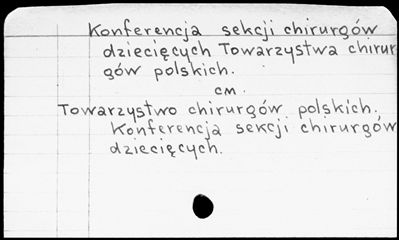 Konferencja sekcji chirurgów
dziecięcych Towarzystwa chirur
gów polskich.
cм.
Towarzystwo chirurgów polskich.
Konferencja sekcji chirurgów
dziecięcych.